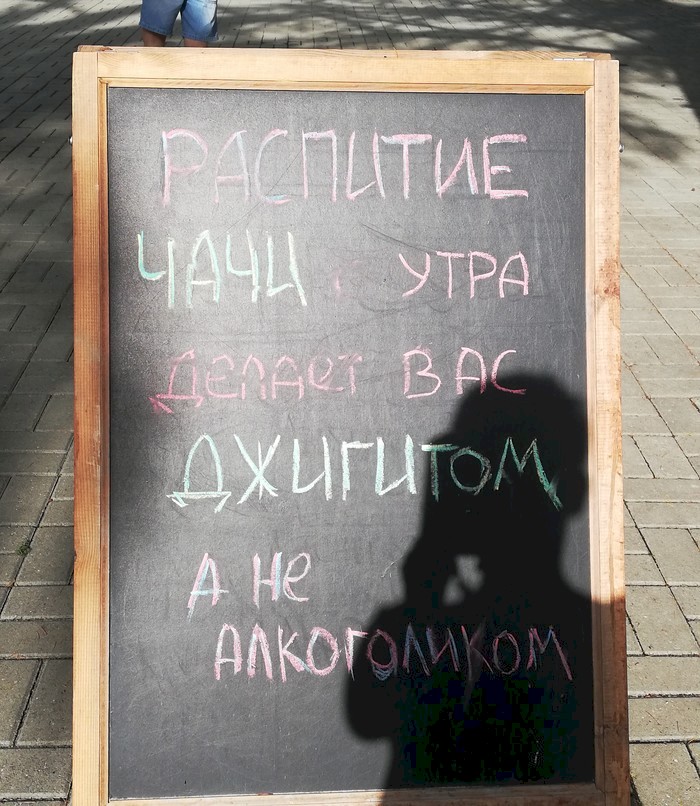 РАСПИТИЕ
ЧАЧИ УТРА
ДЕЛАЕТ ВАС
ДЖИГИТОМ
А НЕ
АЛКОГОЛИКОМ